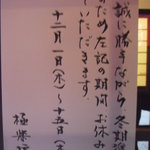 誠に勝手ながら 冬期
ため左記の期間 お休み
いただきます
十二月一日(木)〜十五日(
極楽